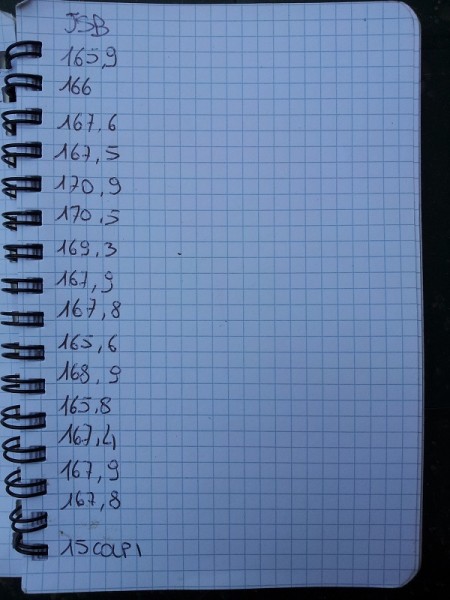 JSB
165,9
166
167,6
167,5
170,9
170,5
169,3
167,9
167,8
165,6
168,9
165,8
167,4
167,9
167,8
15 colpi